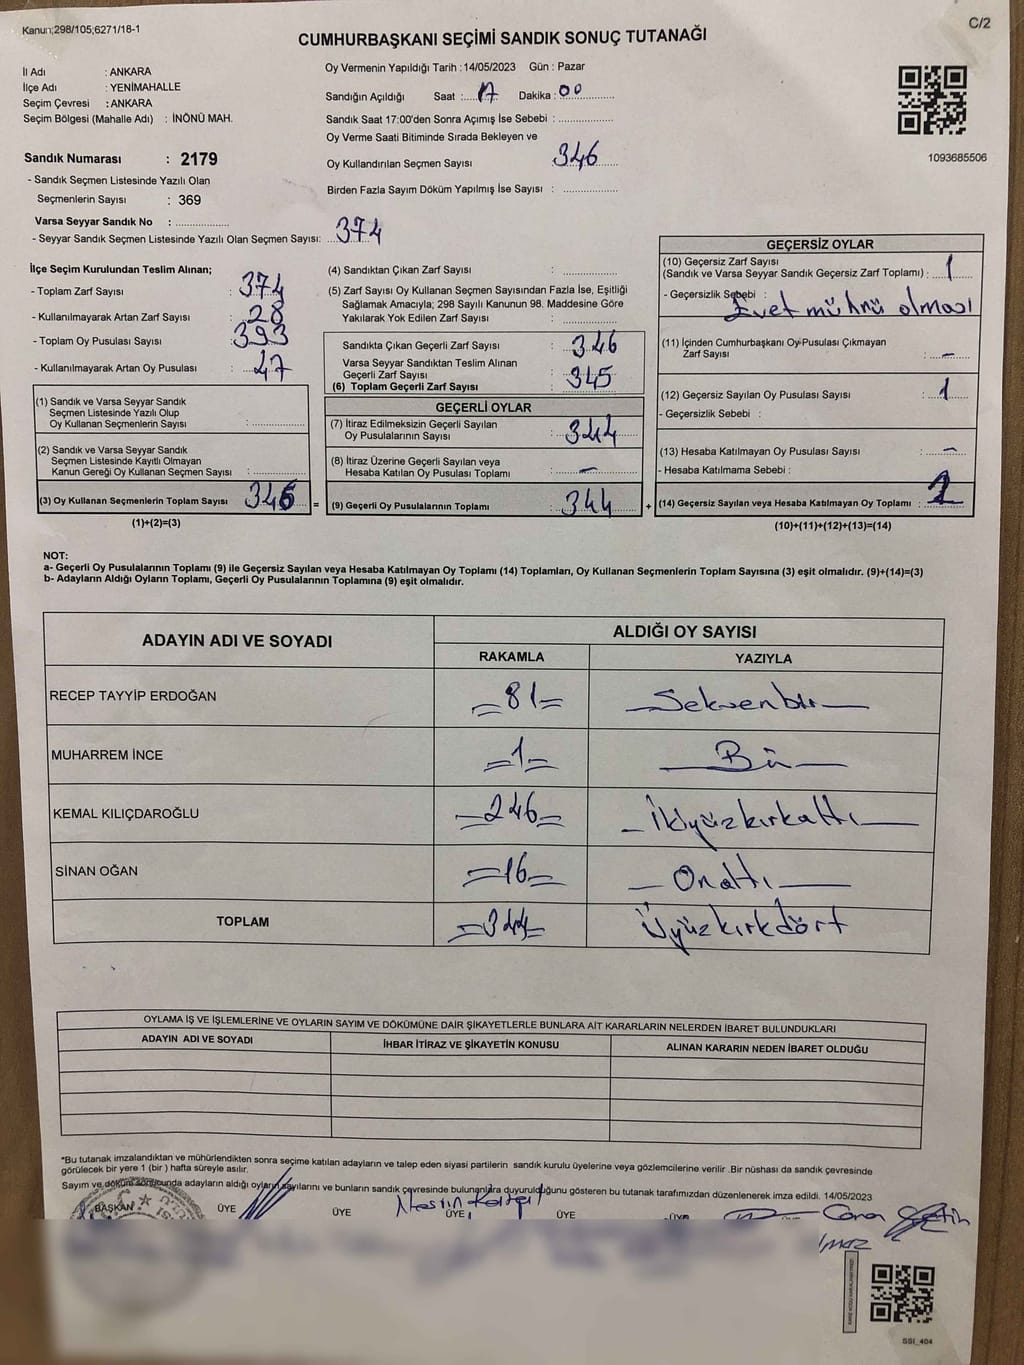 Kanun;298/105;6271/18-1
C/2
CUMHURBAŞKANI SEÇİMİ SANDIK SONUÇ TUTANAĞI
İl Adı : ANKARA
İlçe Adı : YENİMAHALLE
Seçim Çevresi : ANKARA
Seçim Bölgesi (Mahalle Adı) : İNÖNÜ MAH.
Oy Vermenin Yapıldığı Tarih : 14/05/2023 Gün : Pazar
Sandığın Açıldığı Saat : 17 Dakika : 00
Sandık Saat 17:00'den Sonra Açımış İse Sebebi :
Oy Verme Saati Bitiminde Sırada Bekleyen ve
Oy Kullandırılan Seçmen Sayısı 346
Birden Fazla Sayım Döküm Yapılmış İse Sayısı :
1093685506
Sandık Numarası : 2179
- Sandık Seçmen Listesinde Yazılı Olan
Seçmenlerin Sayısı : 369
Varsa Seyyar Sandık No :
- Seyyar Sandık Seçmen Listesinde Yazılı Olan Seçmen Sayısı: 374
İlçe Seçim Kurulundan Teslim Alınan;
- Toplam Zarf Sayısı : 374
- Kullanılmayarak Artan Zarf Sayısı : 28
- Toplam Oy Pusulası Sayısı : 393
- Kullanılmayarak Artan Oy Pusulası : 47
(1) Sandık ve Varsa Seyyar Sandık
Seçmen Listesinde Yazılı Olup
Oy Kullanan Seçmenlerin Sayısı :
(2) Sandık ve Varsa Seyyar Sandık
Seçmen Listesinde Kayıtlı Olmayan
Kanun Gereği Oy Kullanan Seçmen Sayısı :
(3) Oy Kullanan Seçmenlerin Toplam Sayısı 346 =
(1)+(2)=(3)
(4) Sandıktan Çıkan Zarf Sayısı :
(5) Zarf Sayısı Oy Kullanan Seçmen Sayısından Fazla İse, Eşitliği
Sağlamak Amacıyla; 298 Sayılı Kanunun 98. Maddesine Göre
Yakılarak Yok Edilen Zarf Sayısı :
Sandıkta Çıkan Geçerli Zarf Sayısı : 346
Varsa Seyyar Sandıktan Teslim Alınan
Geçerli Zarf Sayısı : 345
(6) Toplam Geçerli Zarf Sayısı
GEÇERLİ OYLAR
(7) İtiraz Edilmeksizin Geçerli Sayılan
Oy Pusulalarının Sayısı : 344
(8) İtiraz Üzerine Geçerli Sayılan veya
Hesaba Katılan Oy Pusulası Toplamı : -
(9) Geçerli Oy Pusulalarının Toplamı : 344 +
GEÇERSİZ OYLAR
(10) Geçersiz Zarf Sayısı
(Sandık ve Varsa Seyyar Sandık Geçersiz Zarf Toplamı) : 1
- Geçersizlik Sebebi : Evet mührü olması
(11) İçinden Cumhurbaşkanı Oy Pusulası Çıkmayan
Zarf Sayısı : -
(12) Geçersiz Sayılan Oy Pusulası Sayısı : 1
- Geçersizlik Sebebi :
(13) Hesaba Katılmayan Oy Pusulası Sayısı : -
- Hesaba Katılmama Sebebi :
(14) Geçersiz Sayılan veya Hesaba Katılmayan Oy Toplamı : 2
(10)+(11)+(12)+(13)=(14)
NOT:
a- Geçerli Oy Pusulalarının Toplamı (9) ile Geçersiz Sayılan veya Hesaba Katılmayan Oy Toplamı (14) Toplamları, Oy Kullanan Seçmenlerin Toplam Sayısına (3) eşit olmalıdır. (9)+(14)=(3)
b- Adayların Aldığı Oyların Toplamı, Geçerli Oy Pusulalarının Toplamına (9) eşit olmalıdır.
ADAYIN ADI VE SOYADI
ALDIĞI OY SAYISI
RAKAMLA YAZIYLA
RECEP TAYYİP ERDOĞAN =81= Seksenbir
MUHARREM İNCE =1= Bir
KEMAL KILIÇDAROĞLU =246= İkiyüzkırkaltı
SİNAN OĞAN =16= Onaltı
TOPLAM =344= Üçyüzkırkdört
OYLAMA İŞ VE İŞLEMLERİNE VE OYLARIN SAYIM VE DÖKÜMÜNE DAİR ŞİKAYETLERLE BUNLARA AİT KARARLARIN NELERDEN İBARET BULUNDUKLARI
ADAYIN ADI VE SOYADI İHBAR İTİRAZ VE ŞİKAYETİN KONUSU ALINAN KARARIN NEDEN İBARET OLDUĞU
*Bu tutanak imzalandıktan ve mühürlendikten sonra seçime katılan adayların ve talep eden siyasi partilerin sandık kurulu üyelerine veya gözlemcilerine verilir .Bir nüshası da sandık çevresinde
görülecek bir yere 1 (bir ) hafta süreyle asılır.
Sayım ve döküm sonucunda adayların aldığı oyların sayılarını ve bunların sandık çevresinde bulunanlara duyurulduğunu gösteren bu tutanak tarafımızdan düzenlenerek imza edildi. 14/05/2023
BAŞKAN ÜYE ÜYE ÜYE ÜYE ÜYE
SSI_404